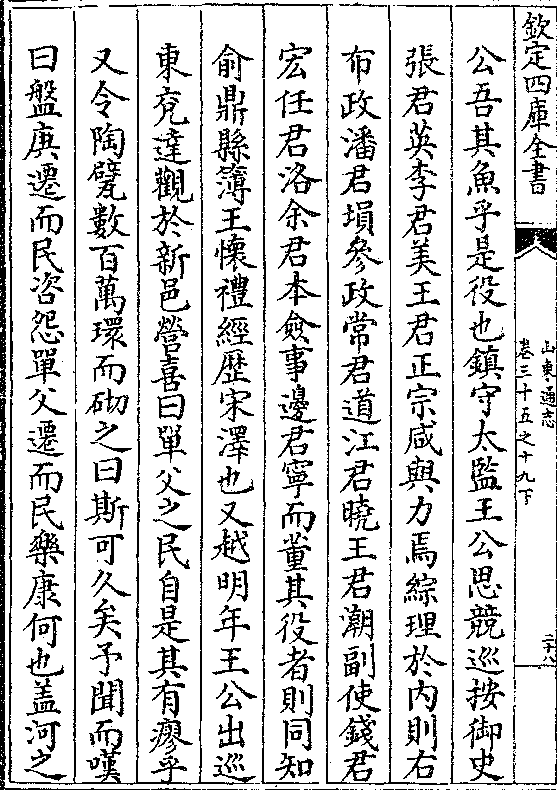 欽定四庫全書
山東通志
卷三十五之十九下
公吾其魚乎是役也鎮守太監王公思競巡按御史
張君英李君美王君正宗咸與力焉綜理於内則右
布政潘君塤參政常君道江君曉王君潮副使錢君
宏任君洛余君本僉事邊君寧而董其役者則同知
俞鼎縣簿王懷禮經歴宋澤也又越明年王公出巡
東兖達觀於新邑營喜曰單父之民自是其有瘳乎
又令陶甓數百萬環而砌之曰斯可久矣予聞而嘆
曰盤庚遷而民咨怨單父遷而民樂康何也盖河之